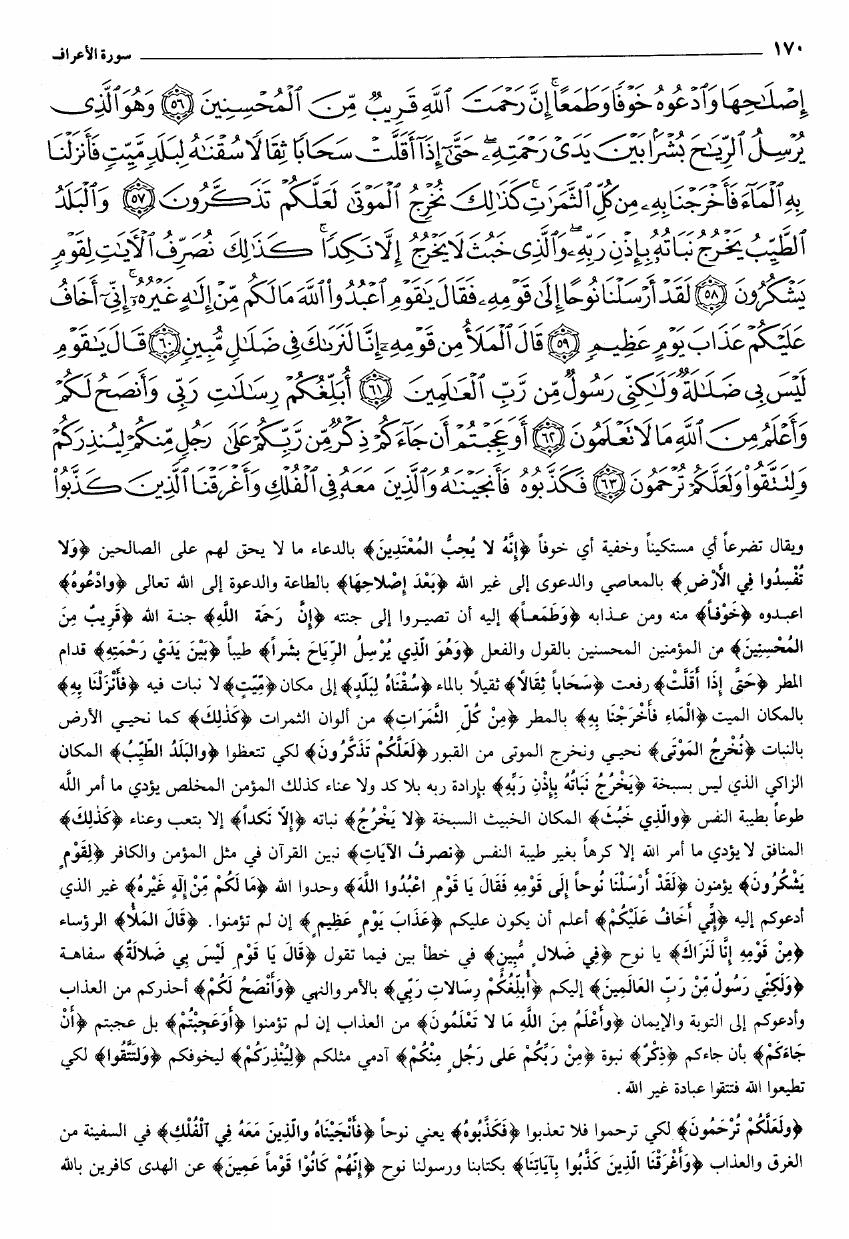 ١٧٠ سورة الأعراف
إِصْلَـٰحِهَا وَٱدْعُوهُ خَوْفًا وَطَمَعًا ۚ إِنَّ رَحْمَتَ ٱللَّهِ قَرِيبٌ مِّنَ ٱلْمُحْسِنِينَ ﴿٥٦﴾ وَهُوَ ٱلَّذِى
يُرْسِلُ ٱلرِّيَـٰحَ بُشْرًۢا بَيْنَ يَدَىْ رَحْمَتِهِۦ ۖ حَتَّىٰٓ إِذَآ أَقَلَّتْ سَحَابًا ثِقَالًا سُقْنَـٰهُ لِبَلَدٍ مَّيِّتٍ فَأَنزَلْنَا
بِهِ ٱلْمَآءَ فَأَخْرَجْنَا بِهِۦ مِن كُلِّ ٱلثَّمَرَٰتِ ۚ كَذَٰلِكَ نُخْرِجُ ٱلْمَوْتَىٰ لَعَلَّكُمْ تَذَكَّرُونَ ﴿٥٧﴾ وَٱلْبَلَدُ
ٱلطَّيِّبُ يَخْرُجُ نَبَاتُهُۥ بِإِذْنِ رَبِّهِۦ ۖ وَٱلَّذِى خَبُثَ لَا يَخْرُجُ إِلَّا نَكِدًا ۚ كَذَٰلِكَ نُصَرِّفُ ٱلْـَٔايَـٰتِ لِقَوْمٍ
يَشْكُرُونَ ﴿٥٨﴾ لَقَدْ أَرْسَلْنَا نُوحًا إِلَىٰ قَوْمِهِۦ فَقَالَ يَـٰقَوْمِ ٱعْبُدُوا۟ ٱللَّهَ مَا لَكُم مِّنْ إِلَـٰهٍ غَيْرُهُۥٓ إِنِّىٓ أَخَافُ
عَلَيْكُمْ عَذَابَ يَوْمٍ عَظِيمٍ ﴿٥٩﴾ قَالَ ٱلْمَلَأُ مِن قَوْمِهِۦٓ إِنَّا لَنَرَىٰكَ فِى ضَلَـٰلٍ مُّبِينٍ ﴿٦٠﴾ قَالَ يَـٰقَوْمِ
لَيْسَ بِى ضَلَـٰلَةٌ وَلَـٰكِنِّى رَسُولٌ مِّن رَّبِّ ٱلْعَـٰلَمِينَ ﴿٦١﴾ أُبَلِّغُكُمْ رِسَـٰلَـٰتِ رَبِّى وَأَنصَحُ لَكُمْ
وَأَعْلَمُ مِنَ ٱللَّهِ مَا لَا تَعْلَمُونَ ﴿٦٢﴾ أَوَعَجِبْتُمْ أَن جَآءَكُمْ ذِكْرٌ مِّن رَّبِّكُمْ عَلَىٰ رَجُلٍ مِّنكُمْ لِيُنذِرَكُمْ
وَلِتَتَّقُوا۟ وَلَعَلَّكُمْ تُرْحَمُونَ ﴿٦٣﴾ فَكَذَّبُوهُ فَأَنجَيْنَـٰهُ وَٱلَّذِينَ مَعَهُۥ فِى ٱلْفُلْكِ وَأَغْرَقْنَا ٱلَّذِينَ كَذَّبُوا۟
ويقال تضرعاً أي مستكيناً وخفية أي خوفاً ﴿إِنَّهُ لا يُحِبُّ المُعْتَدِينَ﴾ بالدعاء ما لا يحق لهم على الصالحين ﴿وَلا
تُفْسِدُوا فِي الأَرْضِ﴾ بالمعاصي والدعوى إلى غير الله ﴿بَعْدَ إِصْلاحِهَا﴾ بالطاعة والدعوة إلى الله تعالى ﴿وادْعُوهُ﴾
اعبدوه ﴿خَوْفاً﴾ منه ومن عذابه ﴿وَطَمَعاً﴾ إليه أن تصيروا إلى جنته ﴿إِنَّ رَحْمَةَ اللَّهِ﴾ جنة الله ﴿قَرِيبٌ مِنَ
المُحْسِنِينَ﴾ من المؤمنين المحسنين بالقول والفعل ﴿وَهُوَ الَّذِي يُرْسِلُ الرِّيَاحَ بَشْراً﴾ طيباً ﴿بَيْنَ يَدَيْ رَحْمَتِهِ﴾ قدام
المطر ﴿حَتَّى إِذَا أَقَلَّتْ﴾ رفعت ﴿سَحَاباً ثِقَالاً﴾ ثقيلاً بالماء ﴿سُقْنَاهُ لِبَلَدٍ﴾ إلى مكان ﴿مَّيِّتٍ﴾ لا نبات فيه ﴿فَأَنْزَلْنَا بِهِ﴾
بالمكان الميت ﴿الْمَاءِ فَأَخْرَجْنَا بِهِ﴾ بالمطر ﴿مِنْ كُلِّ الثَّمَرَاتِ﴾ من ألوان الثمرات ﴿كَذَلِكَ﴾ كما نحيي الأرض
بالنبات ﴿نُخْرِجُ المَوْتَى﴾ نحيي ونخرج الموتى من القبور ﴿لَعَلَّكُمْ تَذَكَّرُونَ﴾ لكي تتعظوا ﴿والبَلَدُ الطَّيِّبُ﴾ المكان
الزاكي الذي ليس بسبخة ﴿يَخْرُجُ نَبَاتُهُ بِإِذْنِ رَبِّهِ﴾ بإرادة ربه بلا كد ولا عناء كذلك المؤمن المخلص يؤدي ما أمر الله
طوعاً بطيبة النفس ﴿والَّذِي خَبُثَ﴾ المكان الخبيث السبخة ﴿لا يَخْرُجُ﴾ نباته ﴿إِلاَّ نَكداً﴾ إلا بتعب وعناء ﴿كَذٰلِكَ﴾
المنافق لا يؤدي ما أمر الله إلا كرهاً بغير طيبة النفس ﴿نصرفُ الآيَاتِ﴾ نبين القرآن في مثل المؤمن والكافر ﴿لِقَوْمٍ
يَشْكُرُونَ﴾ يؤمنون ﴿لَقَدْ أَرْسَلْنَا نُوحاً إِلَى قَوْمِهِ فَقَالَ يَا قَوْمِ اعْبُدُوا اللَّهَ﴾ وحدوا الله ﴿مَا لَكُمْ مِّنْ إِلٰهٍ غَيْرهُ﴾ غير الذي
أدعوكم إليه ﴿إِنِّي أَخَافُ عَلَيْكُمْ﴾ أعلم أن يكون عليكم ﴿عَذَابَ يَوْمٍ عَظِيمٍ﴾ إن لم تؤمنوا. ﴿قَالَ المَلأُ﴾ الرؤساء
﴿مِنْ قَوْمِهِ إِنَّا لَنَرَاكَ﴾ يا نوح ﴿فِي ضَلالٍ مُبِينٍ﴾ في خطأ بين فيما تقول ﴿قَالَ يَا قَوْمِ لَيْسَ بِي ضَلالَةٌ﴾ سفاهة
﴿وَلَكِنِّي رَسُولٌ مِّنْ رَبِّ العَالَمِينَ﴾ إليكم ﴿أُبَلِّغُكُمْ رِسَالاتِ رَبِّي﴾ بالأمر والنهي ﴿وَأَنْصَحُ لَكُمْ﴾ أحذركم من العذاب
وأدعوكم إلى التوبة والإيمان ﴿وأَعْلَمُ مِنَ اللَّهِ مَا لا تَعْلَمُونَ﴾ من العذاب إن لم تؤمنوا ﴿أَوَعَجِبْتُمْ﴾ بل عجبتم ﴿أَنْ
جَاءَكُمْ﴾ بأن جاءكم ﴿ذِكْرٌ﴾ نبوة ﴿مِنْ رَبِّكُمْ عَلى رَجُلٍ مِنْكُمْ﴾ آدمي مثلكم ﴿لِيُنْذِرَكُمْ﴾ ليخوفكم ﴿وَلتَتَّقُوا﴾ لكي
تطيعوا الله فتتقوا عبادة غير الله .
﴿وَلَعَلَّكُمْ تُرْحَمُونَ﴾ لكي ترحموا فلا تعذبوا ﴿فَكَذَّبُوهُ﴾ يعني نوحاً ﴿فَأَنْجَيْنَاهُ والَّذِينَ مَعَهُ فِي ٱلْفُلْكِ﴾ في السفينة من
الغرق والعذاب ﴿وَأَغْرَقْنَا الَّذِينَ كَذَّبُوا بِآيَاتِنَا﴾ بكتابنا ورسولنا نوح ﴿إِنَّهُمْ كَانُوْا قَوْماً عَمِينَ﴾ عن الهدى كافرين بالله